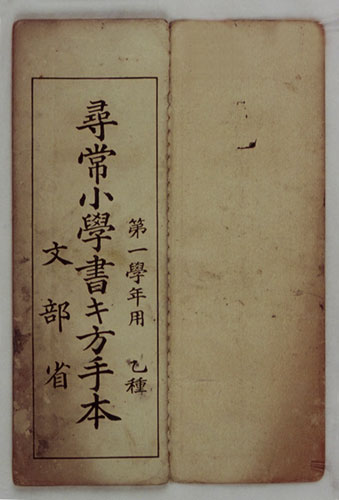 第一學年用 乙種
尋常小學書キ方手本
文部省